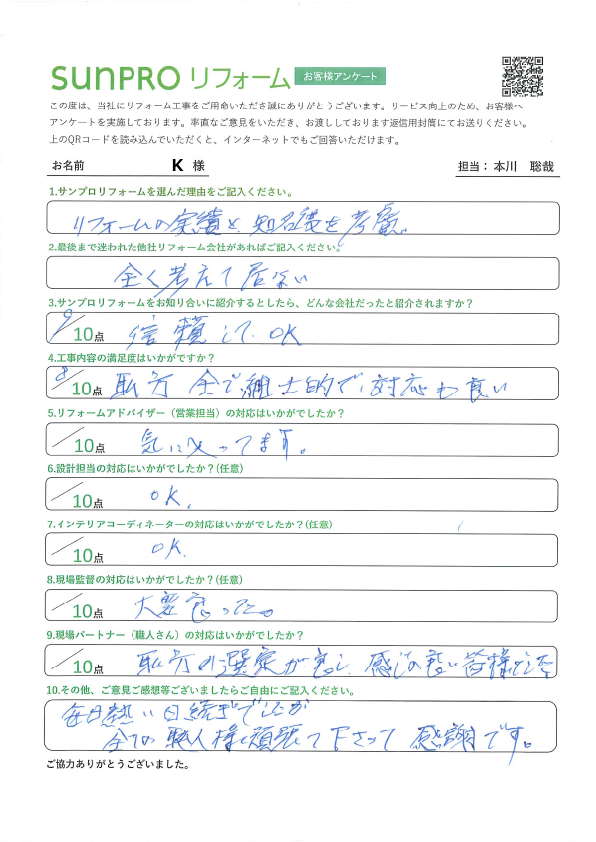 sunPRO リフォーム お客様アンケート
この度は、当社にリフォーム工事をご用命いただき誠にありがとうございます。サービス向上のため、お客様へ
アンケートを実施しております。率直なご意見をいただき、お渡ししております返信用封筒にてお送りください。
上のQRコードを読み込んでいただくと、インターネットでもご回答いただけます。
お名前 K 様 担当：本川 聡哉
1.サンプロリフォームを選んだ理由をご記入ください。
リフォームの実績と知名度を考慮。
2.最後まで迷われた他社リフォーム会社があればご記入ください。
全く考えて居ない
3.サンプロリフォームをお知り合いに紹介するとしたら、どんな会社だったと紹介されますか？
9/10点 信頼して OK
4.工事内容の満足度はいかがですか？
8/10点 取方 全て紳士的で対応も良い
5.リフォームアドバイザー（営業担当）の対応はいかがでしたか？
/10点 気に入ってます。
6.設計担当の対応はいかがでしたか？(任意)
/10点 OK.
7.インテリアコーディネーターの対応はいかがでしたか？(任意)
/10点 OK.
8.現場監督の対応はいかがでしたか？(任意)
/10点 大変良った。
9.現場パートナー（職人さん）の対応はいかがでしたか？
/10点 取方の選定が良し、感じの良い皆様でした
10.その他、ご意見ご感想等ございましたらご自由にご記入ください。
毎日熱い日続きでしたが
全ての職人様も頑張って下さって感謝です。
ご協力ありがとうございました。